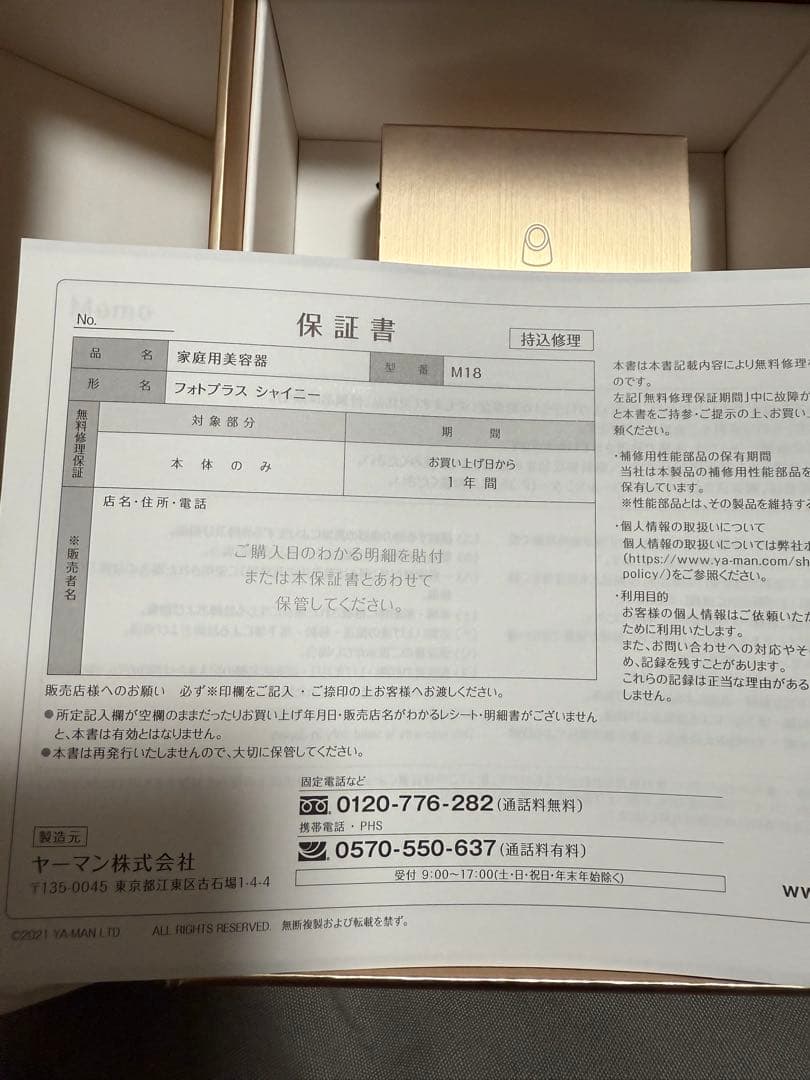 No.
保証書
持込修理
品名 家庭用美容器 型番 M18
形名 フォトプラス シャイニー
無料修理保証
対象部分 期間
本体のみ お買い上げ日から
1年間
※販売者名
店名・住所・電話
ご購入日のわかる明細を貼付
または本保証書とあわせて
保管してください。
販売店様へのお願い 必ず※印欄をご記入・ご捺印の上お客様へお渡しください。
●所定記入欄が空欄のままだったりお買い上げ年月日・販売店名がわかるレシート・明細書がございません
と、本書は有効とはなりません。
●本書は再発行いたしませんので、大切に保管してください。
固定電話など
0120-776-282(通話料無料)
携帯電話・PHS
0570-550-637(通話料有料)
受付 9:00〜17:00(土・日・祝日・年末年始除く)
製造元
ヤーマン株式会社
〒135-0045 東京都江東区古石場1-4-4
©2021 YA-MAN LTD. ALL RIGHTS RESERVED. 無断複製および転載を禁ず。
本書は本書記載内容により無料修理を
のです。
左記「無料修理保証期間」中に故障が
と本書をご持参・ご提示の上、お買い上
頼ください。
・補修用性能部品の保有期間
当社は本製品の補修用性能部品を
保有しています。
※性能部品とは、その製品を維持する
・個人情報の取扱いについて
個人情報の取扱いについては弊社ホ
(https://www.ya-man.com/sh
policy/)をご参照ください。
・利用目的
お客様の個人情報はご依頼いただ
ために利用いたします。
また、お問い合わせへの対応やそ
め、記録を残すことがあります。
これらの記録は正当な理由がある
しません。
ww